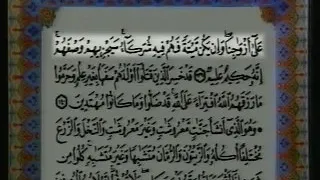 عَلَىٰٓ أَزْوَٰجِنَا وَإِن يَكُن مَّيْتَةً فَهُمْ فِيهِ شُرَكَآءُ سَيَجْزِيهِمْ وَصْفَهُمْ
إِنَّهُۥ حَكِيمٌ عَلِيمٌ ١٣٩ قَدْ خَسِرَ ٱلَّذِينَ قَتَلُوٓا۟ أَوْلَٰدَهُمْ سَفَهًۢا بِغَيْرِ عِلْمٍ وَحَرَّمُوا۟
مَا رَزَقَهُمُ ٱللَّهُ ٱفْتِرَآءً عَلَى ٱللَّهِ قَدْ ضَلُّوا۟ وَمَا كَانُوا۟ مُهْتَدِينَ ١٤٠
وَهُوَ ٱلَّذِىٓ أَنشَأَ جَنَّٰتٍ مَّعْرُوشَٰتٍ وَغَيْرَ مَعْرُوشَٰتٍ وَٱلنَّخْلَ وَٱلزَّرْعَ
مُخْتَلِفًا أُكُلُهُۥ وَٱلزَّيْتُونَ وَٱلرُّمَّانَ مُتَشَٰبِهًا وَغَيْرَ مُتَشَٰبِهٍ كُلُوا۟ مِن